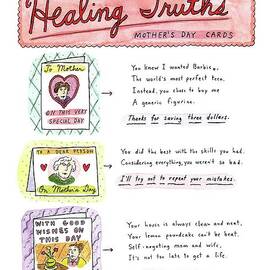 Healing Truths
MOTHER'S DAY CARDS
To Mother
ON THIS VERY
SPECIAL DAY
You know I wanted Barbie®.
The world's most perfect teen.
Instead, you chose to buy me
A generic figurine.
Thanks for saving three dollars.
TO A DEAR PERSON
On Mother's Day
You did the best with the skills you had.
Considering everything, you weren't so bad.
I'll try not to repeat your mistakes.
WITH GOOD
WISHES ON
THIS DAY
Your house is always clean and neat,
Your lemon poundcake can't be beat.
Self-negating mom and wife,
It's not too late to get a life.